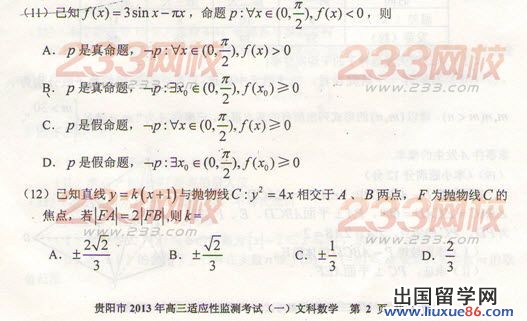 (11) 已知 f(x)=3sin x−πx，命题 p:∀x∈(0,π/2),f(x)<0，则
A. p 是真命题，¬p:∀x∈(0,π/2),f(x)>0
B. p 是真命题，¬p:∃x₀∈(0,π/2),f(x₀)≥0
C. p 是假命题，¬p:∀x∈(0,π/2),f(x)≥0
D. p 是假命题，¬p:∃x₀∈(0,π/2),f(x₀)≥0
(12) 已知直线 y=k(x+1)与抛物线 C:y²=4x 相交于 A、B两点，F 为抛物线 C 的
焦点，若|FA|=2|FB|,则 k=
A. ±2√2/3 B. ±√2/3 C. ±1/3 D. 2/3
贵阳市 2013 年高三适应性监测考试（一）文科数学 第 2 页
233网校
233网校
233网校
出国留学网
www.liuxue86.com